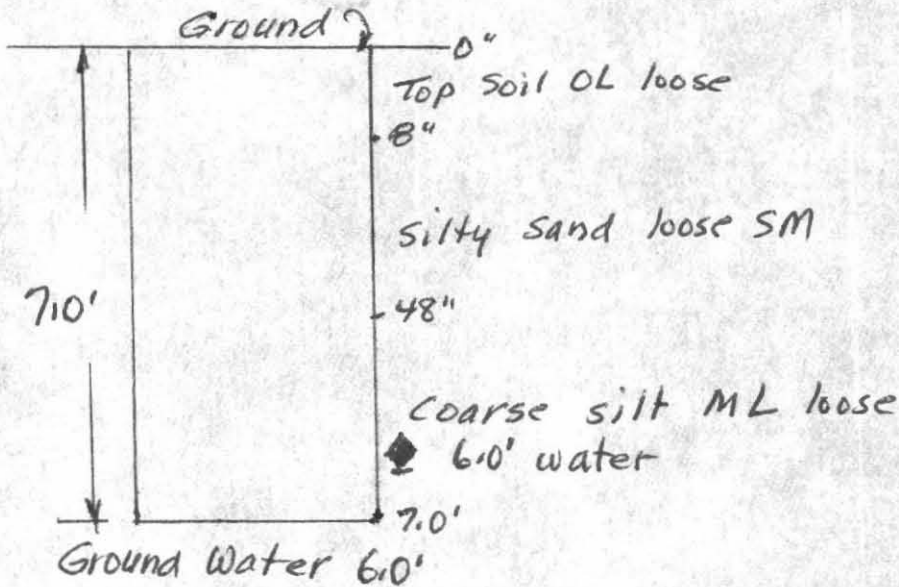 Ground
0"
Top Soil OL loose
8"
Silty Sand loose SM
7.0'
48"
Coarse silt ML loose
6.0' water
7.0'
Ground Water 6.0'